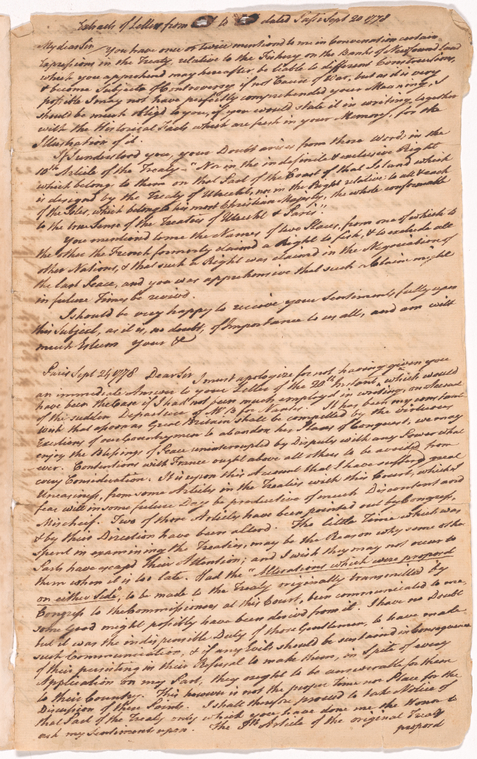 Extracts of Letters from to dated Passi Sept 20 1778
My dear Sir You have once or twice mentioned to me in Conversation certain
Expressions in the Treaty, relative to the Fishery on the Banks of Newfoundland
which you apprehend may hereafter, be liable to different Constructions,
& become Subjects of Controversy if not Cause of War, but as it is very
possible I may not have perfectly comprehended your Meaning, I
should be much obliged to you, if you would state it in writing, together
with the Historical Facts which are fresh in your Memory, for the
Illustration of it.
If I understand you, your Doubt arises from those Word in the
10th Article of the Treaty. "Nor in the indefinite & exclusive Right
which belong to them on that Part of the Coast of that Island which
is designed by the Treaty of Utrecht, nor in the Right relative to all & each
of the Isles, which belong to his most Christian Majesty, the whole conformable
to the true Sense of the Treaties of Utrecht & Paris."
You mentioned to me the Names of two Places, from one of which to
the other the French formerly claimed a Right to fish, & to exclude all
other Nations, & that such a Right was claimed in the Negociations of
the last Peace, and you was apprehensive that such a Claim might
in future Times be revived.
I should be very happy to receive your Sentiments fully upon
this Subject, as it is, no doubt, of Importance to us all, and am with
much Esteem Your &c
Paris Sept 24 1778 Dear Sir, I must apologize for not having given you
an immediate Answer to your Letter of the 20th Instant, which would
have been the Case if I had not been much employed in writing, on Account
of the sudden Departure of Mr B for It has been my constant
Wish that as soon as Great Britain shall be compelled by the virtuous
Exertions of our Countrymen to abandon her Plans of Conquest, we may
enjoy the Blessings of Peace uninterrupted by Disputes with any Power what
ever. Contentions with France ought above all others to be avoided from
every Consideration. It is upon this Account that I have suffered great
Uneasiness, from some Articles in the Treaties with this Court, which I
fear will in some future Day be productive of much Discontent and
Mischief. Two of these Articles have been pointed out by Congress,
& by their Direction have been altered. The little Time which was
spent in examining the Treaties, may be the Reason why some other
Parts have escaped their Attention; and I wish they may not occur to
them when it is too late. Had the Alterations which were proposed
on either Side, to be made to the Treaty originally transmitted by
Congress to the Commissioners at this Court, been communicated to me,
some good might possibly have been derived from it. I have no Doubt
but it was the indispensible Duty of those Gentlemen, to have made
such Communication, & if any Evils should be sustained in Consequence
of their persisting in their Refusal to make them, in Spite of every
Application on my Part, they ought to be answerable for them
to their Country. This however is not the proper time nor Place for the
Discussion of these Points. I shall therefore proceed to take Notice of
that Part of the Treaty only which you have done me the Honor to
ask my Sentiment upon. The Article of the original Treaty
proposed